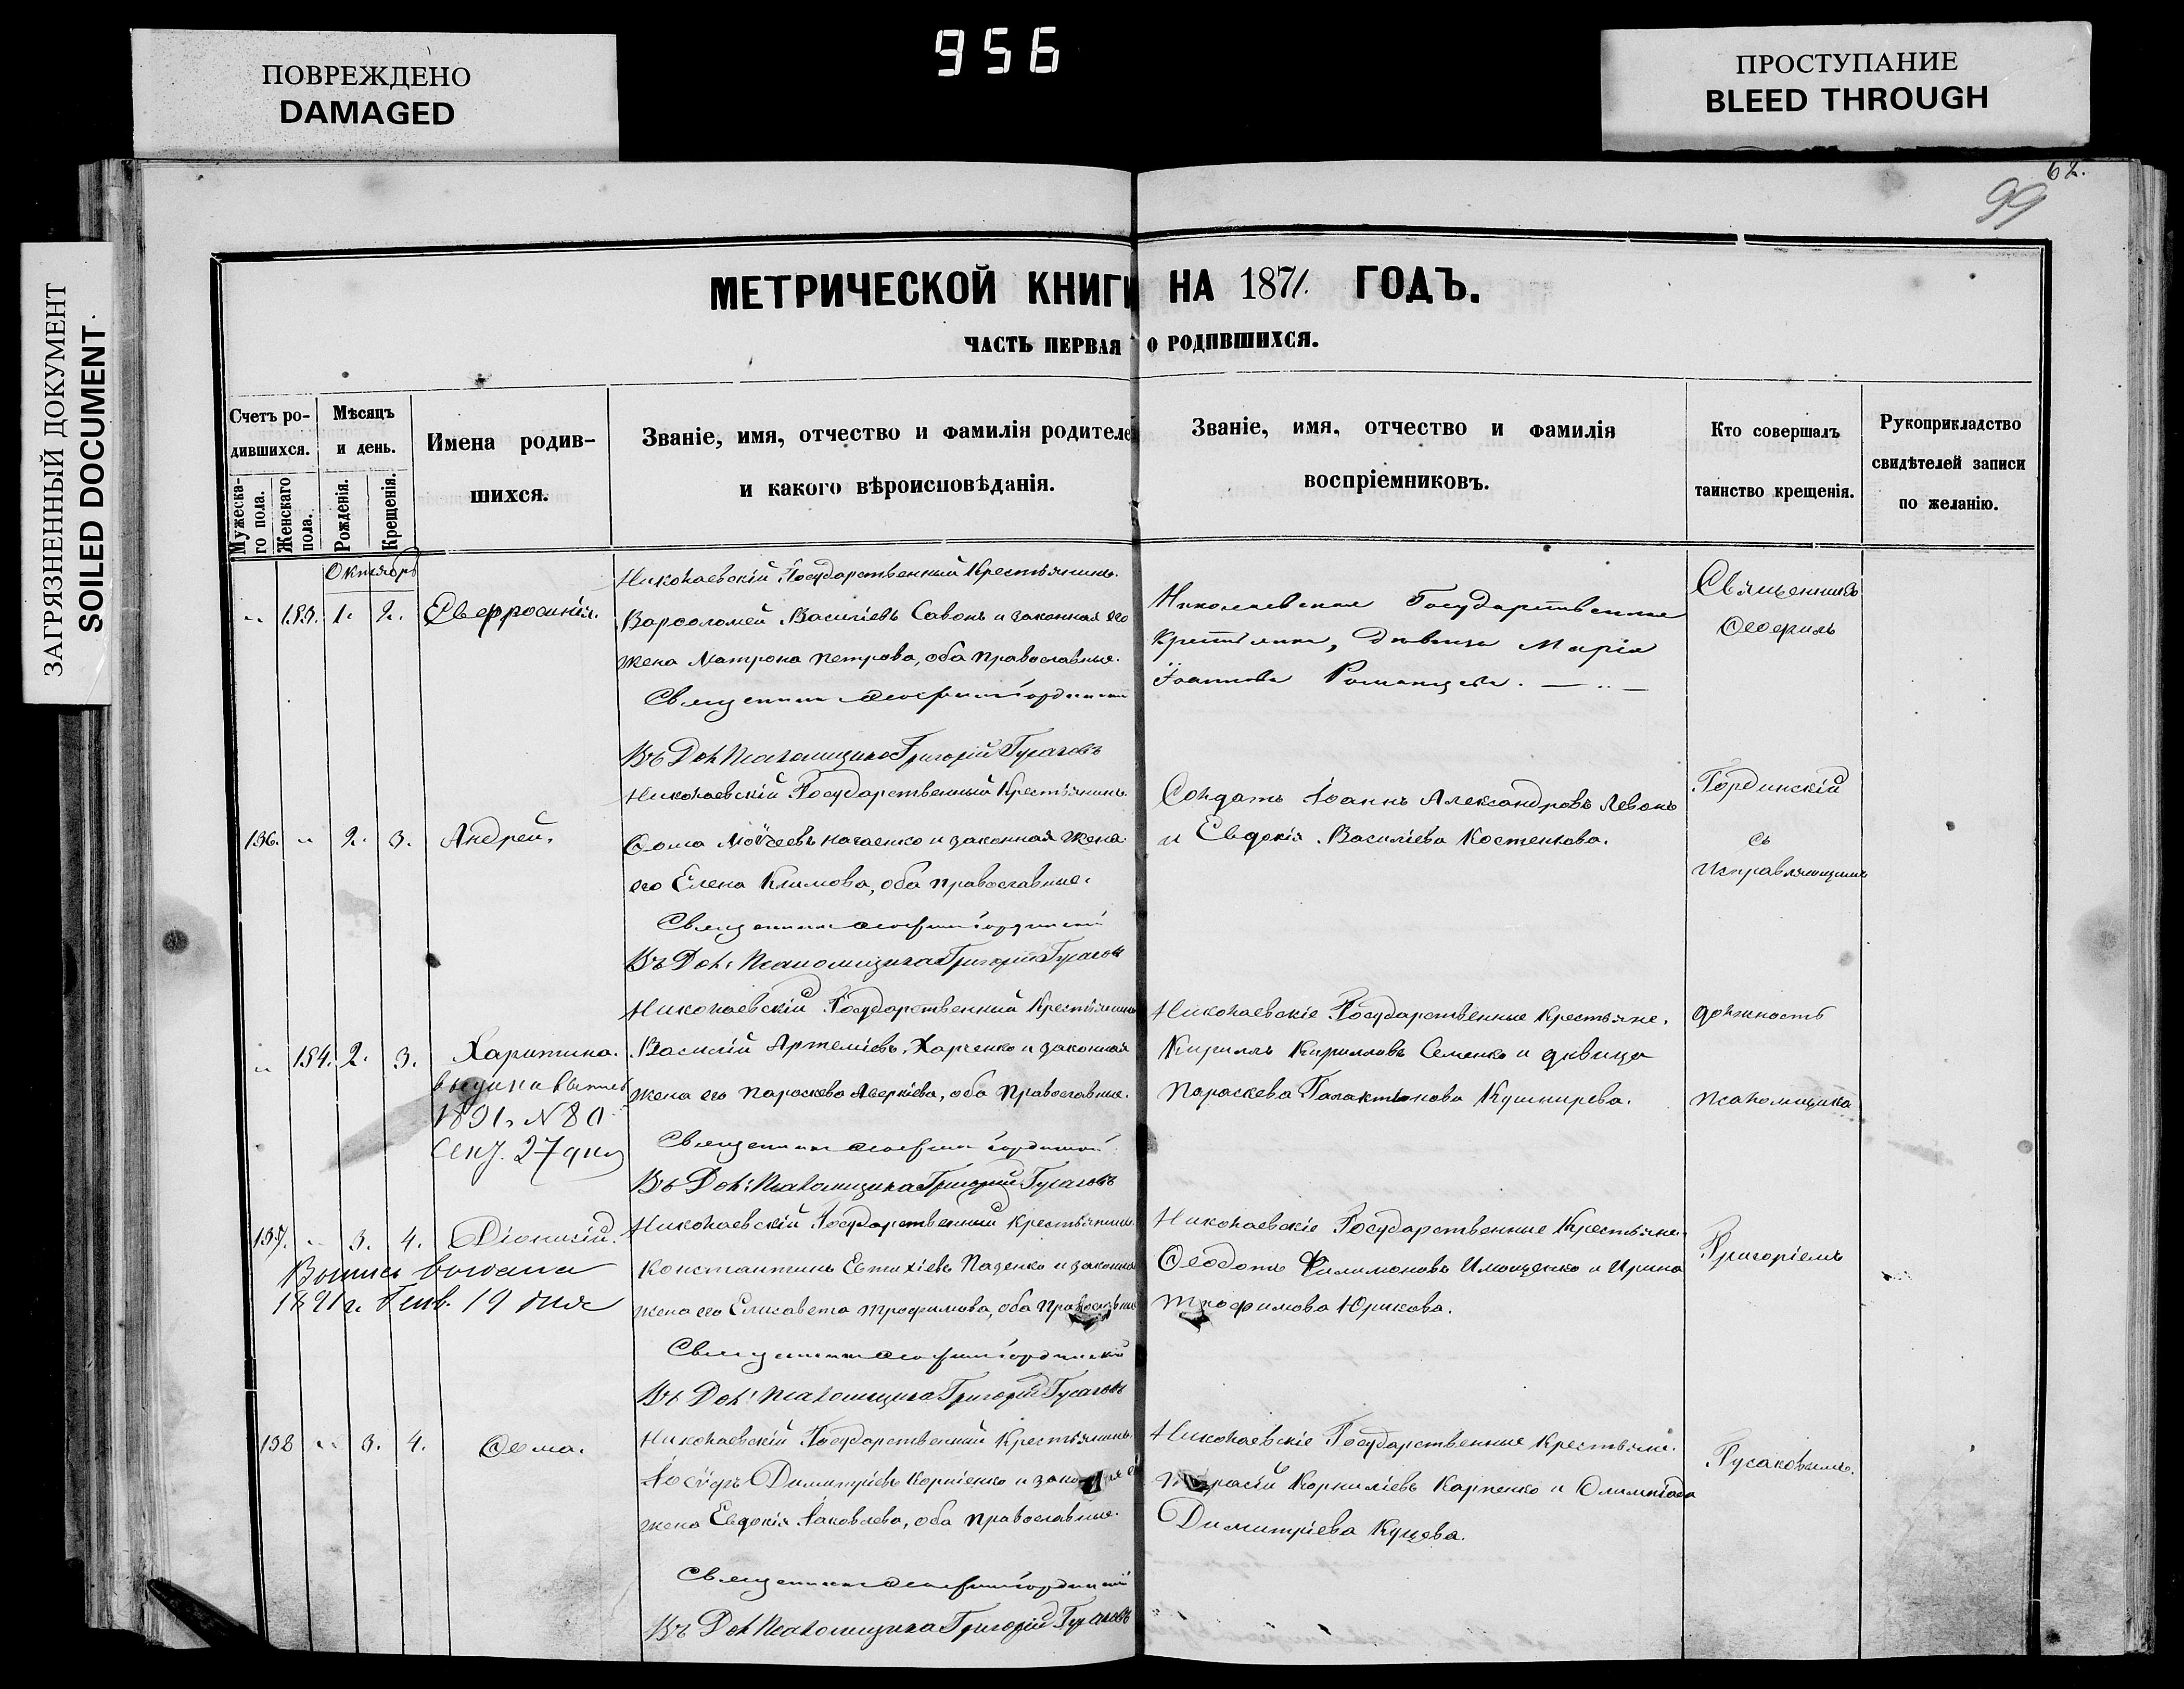 956
ПОВРЕЖДЕНО
DAMAGED
ПРОСТУПАНИЕ
BLEED THROUGH
ЗАГРЯЗНЕННЫЙ ДОКУМЕНТ
SOILED DOCUMENT
62.
99
МЕТРИЧЕСКОЙ КНИГИ НА 1871. ГОДЪ.
ЧАСТЬ ПЕРВАЯ О РОДИВШИХСЯ.
Счетъ ро-
дившихся.
Мужеска-
го пола.
Женскаго
пола.
Мѣсяцъ
и день.
Рожденія.
Крещенія.
Имена родив-
шихся.
Званіе, имя, отчество и фамилія родителей
и какого вѣроисповѣданія.
Званіе, имя, отчество и фамилія
воспріемниковъ.
Кто совершалъ
таинство крещенія.
Рукоприкладство
свидѣтелей записи
по желанію.
Октябрь
„ 183. 1. 2. Евфросинія.
Николаевскій Государственный Крестьянинъ
Варѳоломей Василіевъ Савонъ и законная его
жена Матрона Петрова, оба православные.
Священникъ Ѳеофилъ Гординскій
Въ Дол. Псаломщика Григорій Гусаковъ
Николаевская Государственная
Крестьянка, дѣвица Марія
Іоаннова Романцева.
Священникъ
Ѳеофилъ
136. „ 2. 3. Андрей.
Николаевскій Государственный Крестьянинъ
Ѳома Моѵсеевъ и законная жена
его Елена Климова, оба православные.
Священникъ Ѳеофилъ Гординскій
Въ Дол: Псаломщика Григорій Гусаковъ
Солдатъ Іоаннъ Александровъ Левонъ
и Евдокія Василіева Костенкова.
Гординскій
съ
исправляющимъ
„ 184. 2. 3. Харитина.
1891. N 80
27 дня
Николаевскій Государственный Крестьянинъ
Василій Артеміевъ Харченко и законная
жена его Параскева Аверкіева, оба Православные.
Священникъ Ѳеофилъ Гординскій
Въ Дол: Псаломщика Григорій Гусаковъ
Николаевскіе Государственные Крестьяне,
Кириллъ Кирилловъ Семенко и дѣвица
Параскева Галактіонова Кушнирева.
должность
псаломщика
137. „ 3. 4. Діонисій.
Выпись выдана
1891 г. Генв. 19 дня
Николаевскій Государственный Крестьянинъ
Константинъ Евтихіевъ Паденко и законная
жена его Елисавета Трофимова, оба православные
Священникъ Ѳеофилъ Гординскій
Въ Дол: Псаломщика Григорій Гусаковъ
Николаевскіе Государственные Крестьяне,
Ѳеодотъ Филимоновъ Имощенко и Ирина
Трофимова Юрикова.
Григоріемъ
138 „ 3. 4. Ѳома.
Николаевскій Государственный Крестьянинъ
Іосифъ Димитріевъ Корніенко и законная его
жена Евдокія Іаковлева, оба православные.
Священникъ Ѳеофилъ Гординскій
Въ Дол Псаломщика Григорій Гусаковъ
Николаевскіе Государственные Крестьяне.
Тарасій Корниліевъ Карпенко и Олимпіада
Димитріева Куцева.
Гусаковымъ.